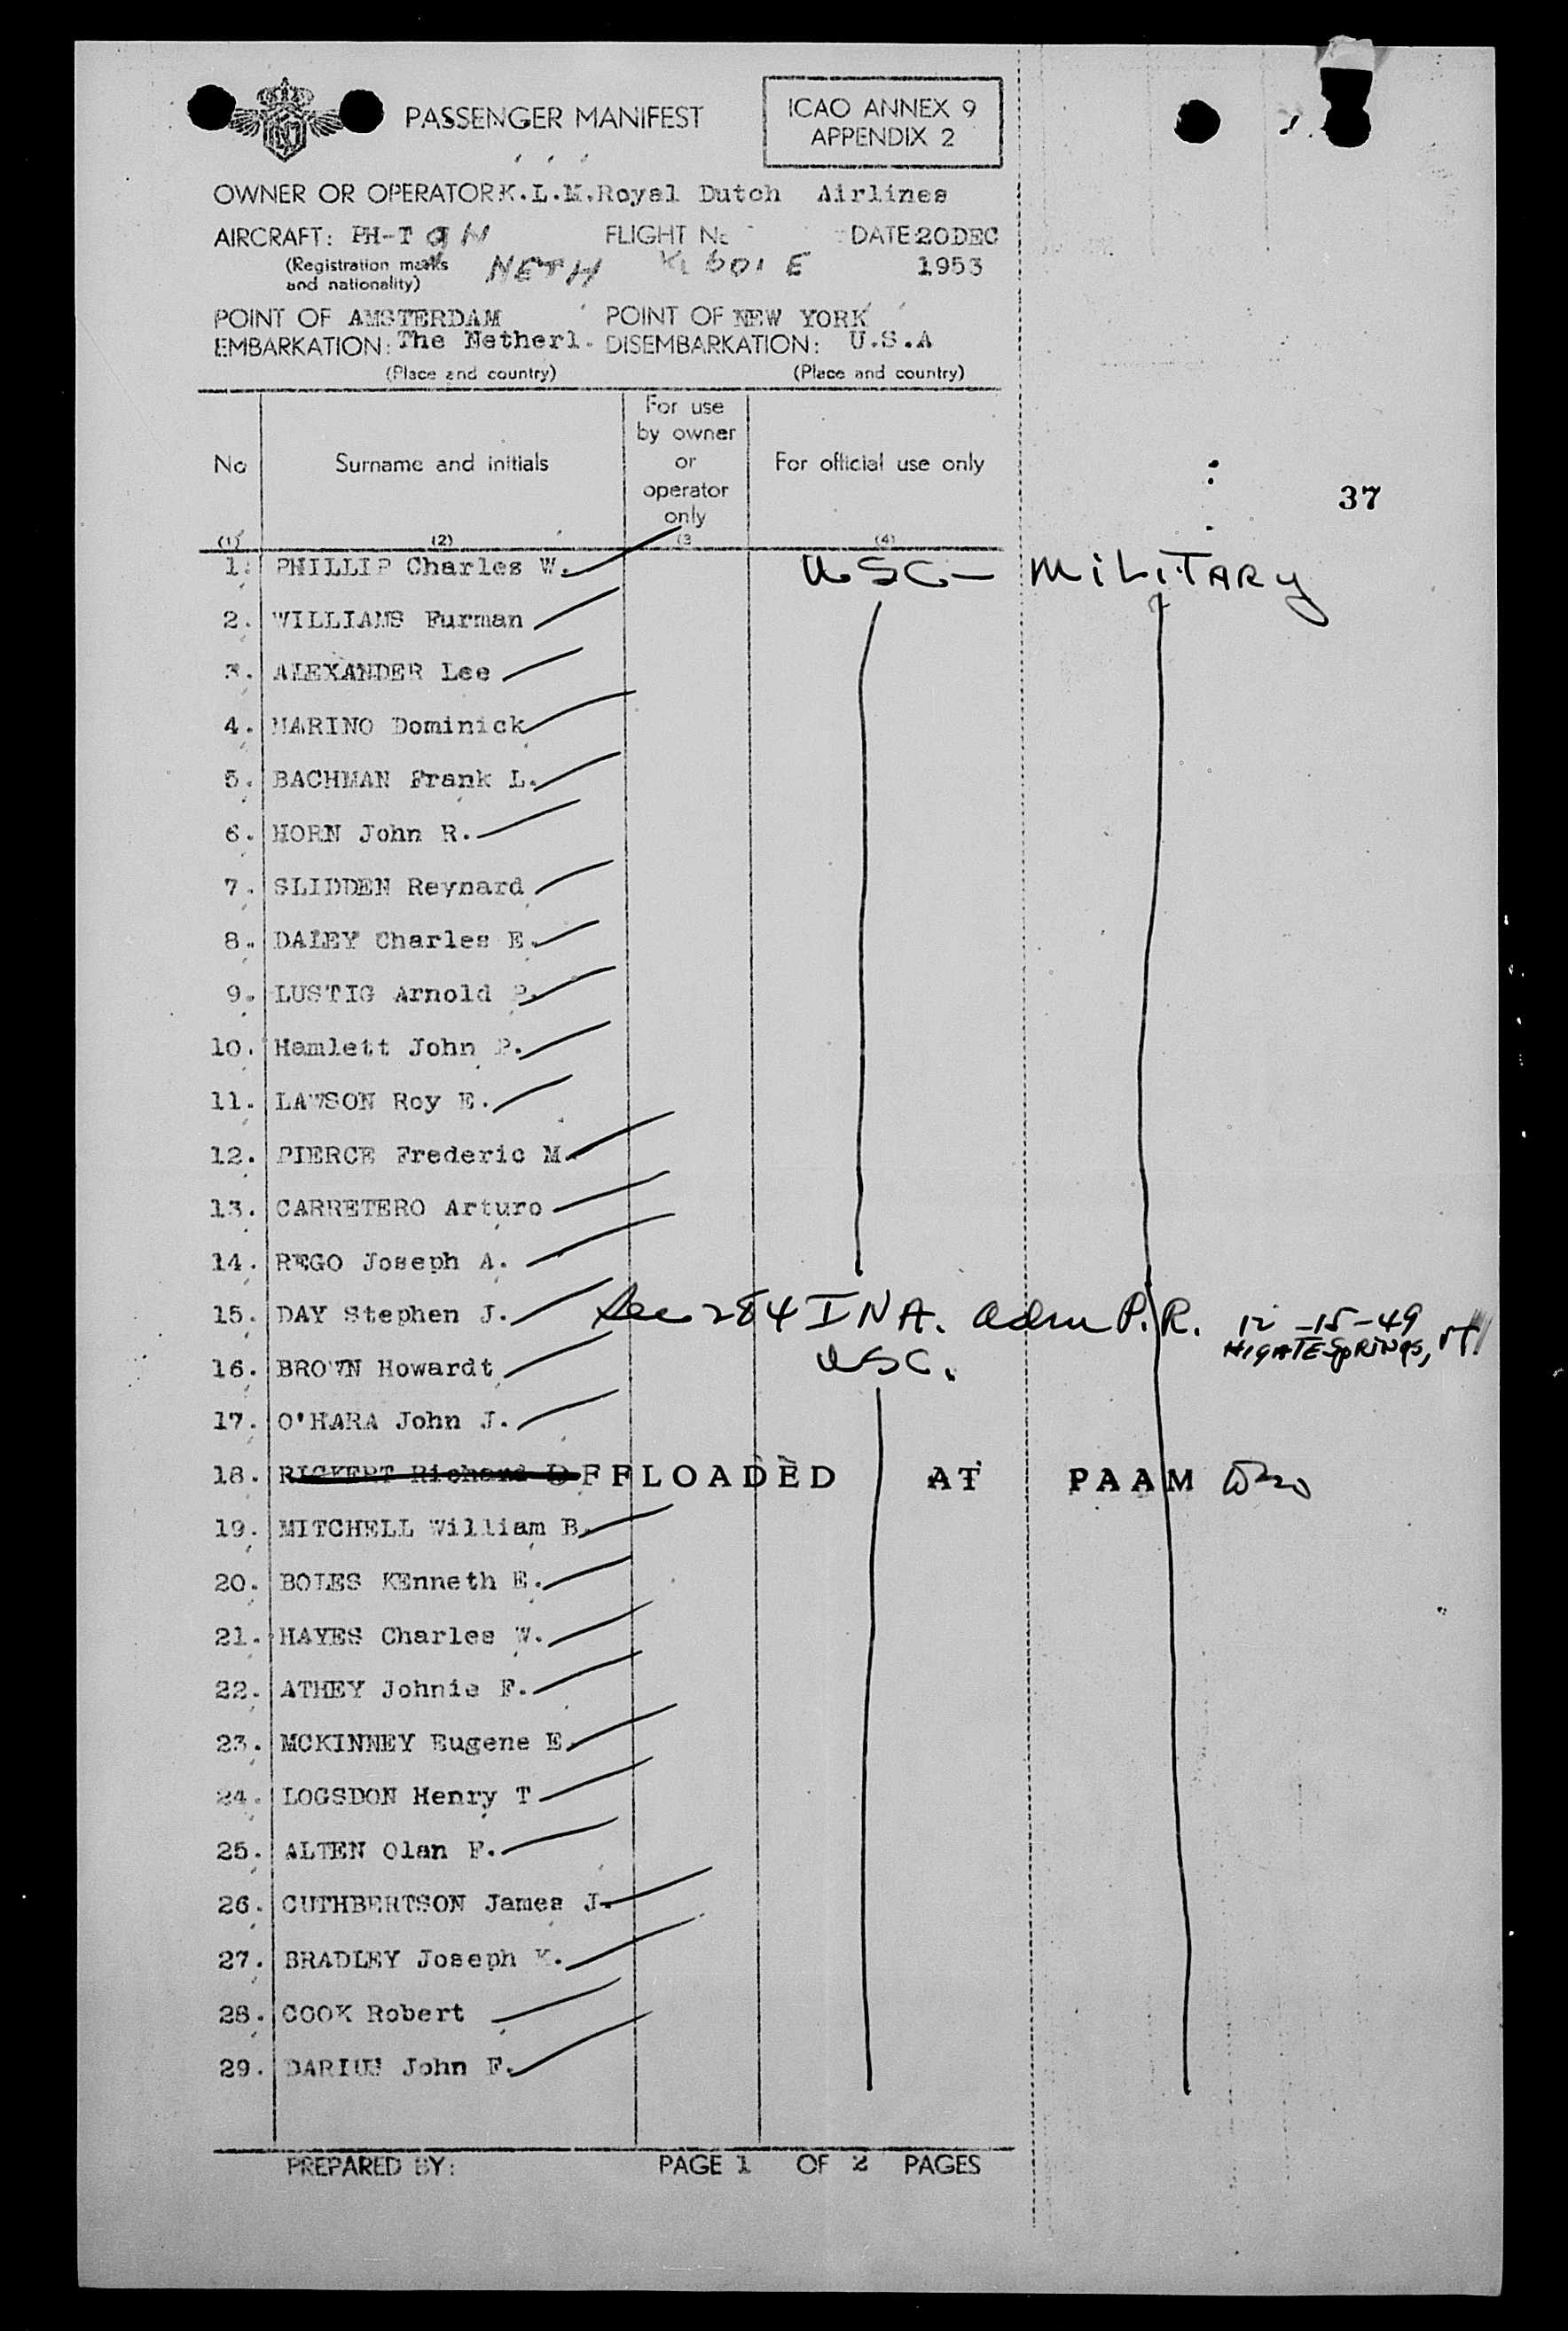 PASSENGER MANIFEST
ICAO ANNEX 9
APPENDIX 2
OWNER OR OPERATOR K.L.M. Royal Dutch Airlines
AIRCRAFT: PH-T FLIGHT No DATE 20DEC
(Registration marks and nationality) NETH 1953
POINT OF EMBARKATION: AMSTERDAM The Netherl.
(Place and country)
POINT OF DISEMBARKATION: NEW YORK U.S.A
(Place and country)
No
Surname and initials
For use by owner or operator only
For official use only
37
(1) (2) (3 (4)
1. PHILLIP Charles W. USC - MILITARY
2. WILLIAMS Furman
3. ALEXANDER Lee
4. MARINO Dominick
5. BACHMAN Frank L.
6. HORN John R.
7. SLIDDEN Reynard
8. DALEY Charles E.
9. LUSTIG Arnold P.
10. Hamlett John P.
11. LAWSON Roy E.
12. PIERCE Frederic M.
13. CARRETERO Arturo
14. REGO Joseph A.
15. DAY Stephen J. Sec 284 INA. Adm P.R. 12-15-49
HIGATE SPRINGS, Vt.
16. BROWN Howardt USC.
17. O'HARA John J.
18. RICKERT Richard OFFLOADED AT PAAM
19. MITCHELL William B.
20. BOLES KEnneth E.
21. HAYES Charles W.
22. ATHEY Johnie F.
23. MCKINNEY Eugene E.
24. LOGSDON Henry T
25. ALTEN Olan F.
26. CUTHBERTSON James J.
27. BRADLEY Joseph K.
28. COOK Robert
29. DARIUS John F.
PREPARED BY: PAGE 1 OF 2 PAGES